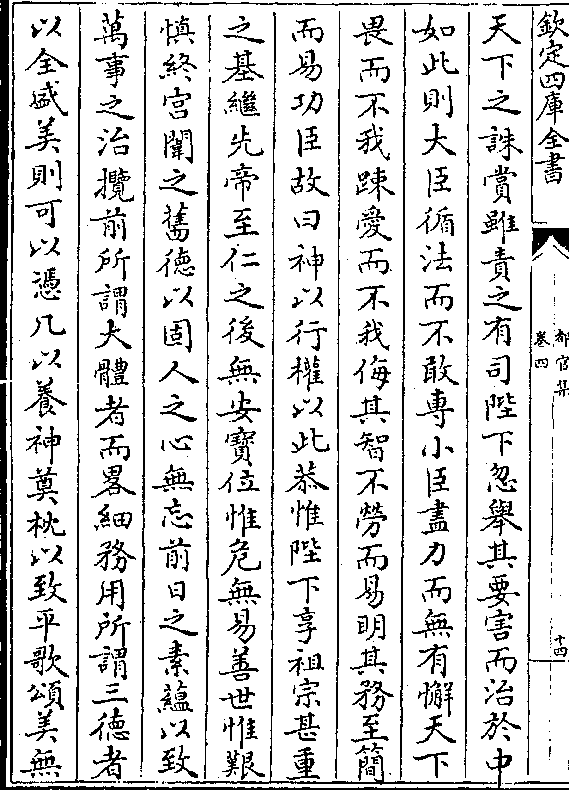 欽定四庫全書
都官集
卷四
十四
天下之誅賞雖責之有司陛下忽舉其要害而治於中
如此則大臣循法而不敢專小臣盡力而無有懈天下
畏而不我踈愛而不我侮其智不勞而易明其務至簡
而易功臣故曰神以行權以此恭惟陛下享祖宗甚重
之基繼先帝至仁之後無安寶位惟危無易善世惟艱
慎終宫闈之舊德以固人之心無忘前日之素蘊以致
萬事之治攬前所謂大體者而畧細務用所謂三德者
以全盛美則可以憑几以養神奠枕以致平歌頌美無